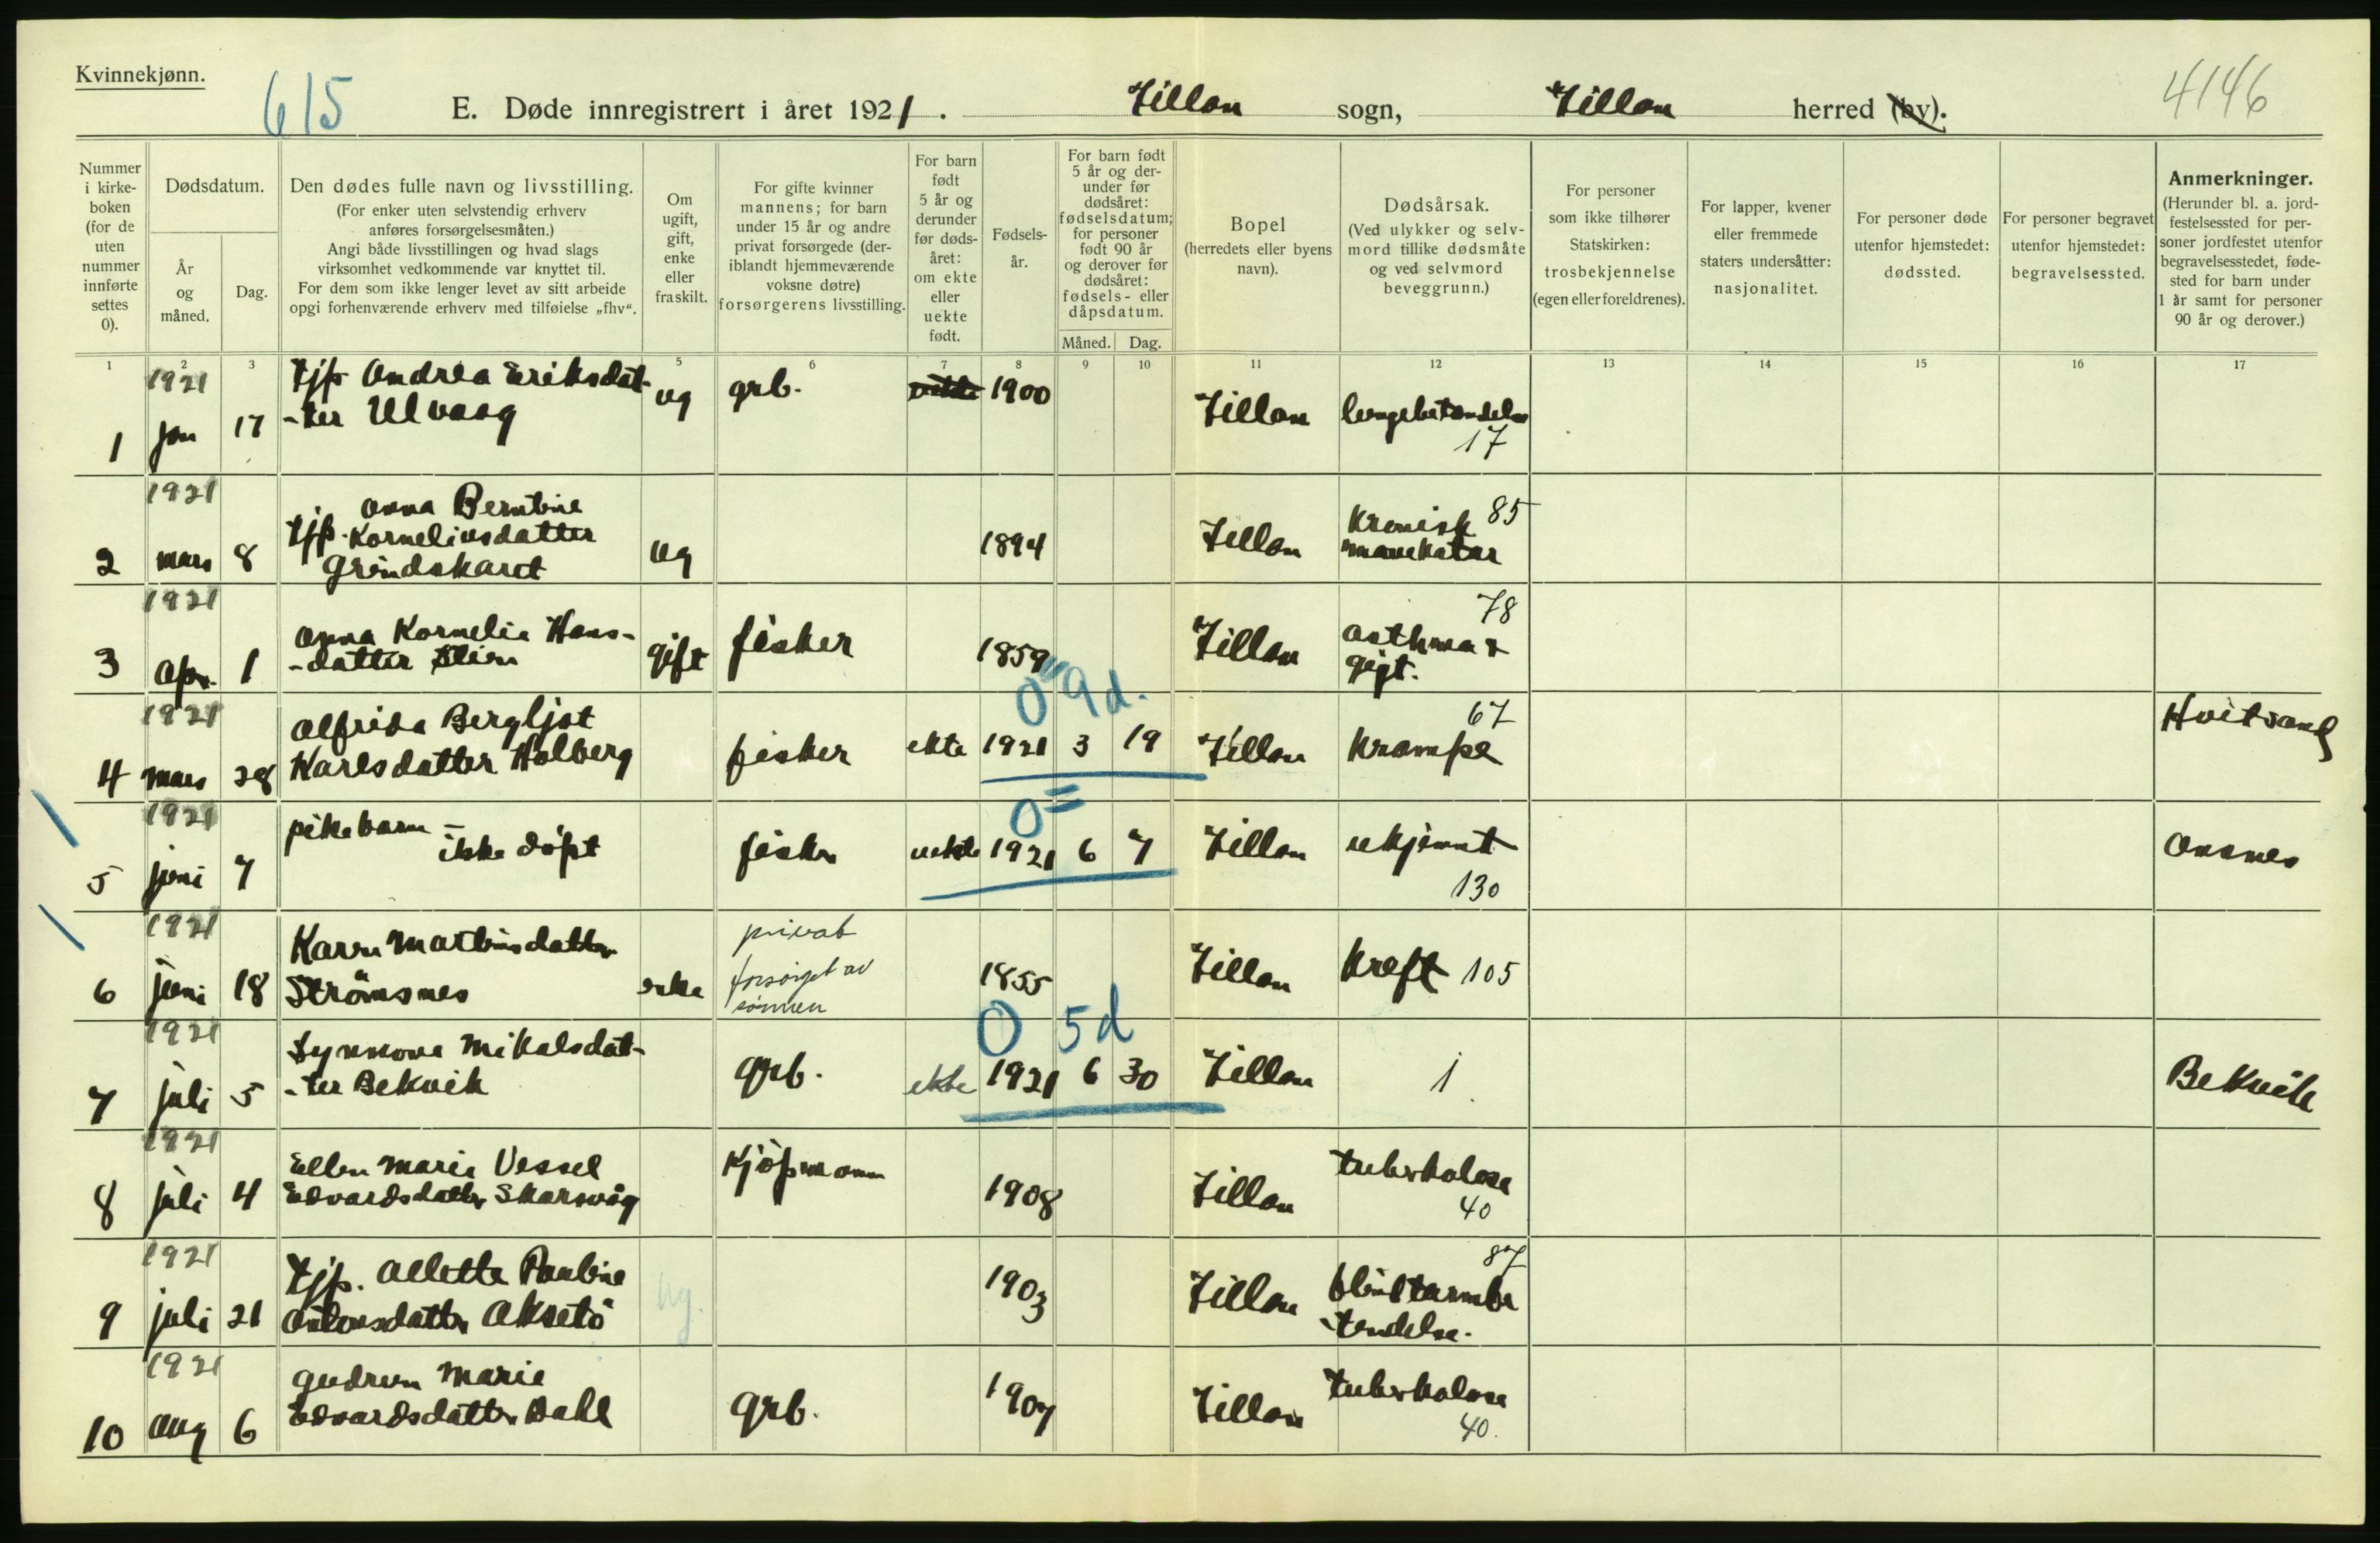 Kvinnekjønn.
615
E. Døde innregistrert i året 1921. Fillan sogn, Fillan herred (by).
4146
Nummer i kirkeboken (for de uten nummer innførte settes 0).
Dødsdatum.
År og måned.
Dag.
Den dødes fulle navn og livsstilling.
(For enker uten selvstendig erhverv anføres forsørgelsesmåten.)
Angi både livsstillingen og hvad slags virksomhet vedkommende var knyttet til.
For dem som ikke lenger levet av sitt arbeide opgi forhenværende erhverv med tilføielse „fhv“.
Om ugift, gift, enke eller fraskilt.
For gifte kvinner mannens; for barn under 15 år og andre privat forsørgede (deriblandt hjemmeværende voksne døtre) forsørgerens livsstilling.
For barn født 5 år og derunder før dødsåret: om ekte eller uekte født.
Fødselsår.
For barn født 5 år og derunder før dødsåret: fødselsdatum; for personer født 90 år og derover før dødsåret: fødsels- eller dåpsdatum.
Måned. Dag.
Bopel (herredets eller byens navn).
Dødsårsak.
(Ved ulykker og selvmord tillike dødsmåte og ved selvmord beveggrunn.)
For personer som ikke tilhører Statskirken: trosbekjennelse (egen eller foreldrenes).
For lapper, kvener eller fremmede staters undersåtter: nasjonalitet.
For personer døde utenfor hjemstedet: dødssted.
For personer begravet utenfor hjemstedet: begravelsessted.
Anmerkninger.
(Herunder bl. a. jordfestelsessted for personer jordfestet utenfor begravelsesstedet, fødested for barn under 1 år samt for personer 90 år og derover.)
1 2 3 5 6 7 8 9 10 11 12 13 14 15 16 17
1 1921 jan 17 Tjp Andrea Eriksdat-
-ter Ulvaag ug grb. 1900 Fillan lungebetendelse 17
2 1921 mars 8 Tjp. Anna Berntine
Korneliusdatter
Grindskaret ug 1894 Fillan Kronisk mavekatar 85
3 1921 Apr. 1 Anna Kornelia Hans-
-datter gift fisker 1859 Fillan asthma & gigt. 78
4 1921 mars 28 Alfrida Bergljot
Karlsdatter Holberg fisker ekte 1921 3 19 Fillan Krampe 67 Hvitsand
0 9 d.
5 1921 juni 7 pikebarn -
ikke døpt fisker uekte 1921 6 7 Fillan ukjennt 130
0
6 1921 juni 18 Karen Martinsdatter
Strømsnes enke privat
forsørget av
sønnen 1855 Fillan Kreft 105
7 1921 juli 5 Synnøva Mikalsdat-
-ter Bekvik grb. ekte 1921 6 30 Fillan 1 Bekvik
0 5 d
8 1921 juli 4 Ellen Marie Vessel
Edvardsdatter Skarsvåg Kjøpmann 1908 Fillan tuberkolose 40
9 1921 juli 21 Tjp. Alette Pauline
Antonsdatter Aksetø ug. 1903 Fillan blintarmbe
-tendelse. 87
10 1921 Aug 6 Gudrun Marie
Edvardsdatter Dahl grb. 1907 Fillan tuberkolose 40.